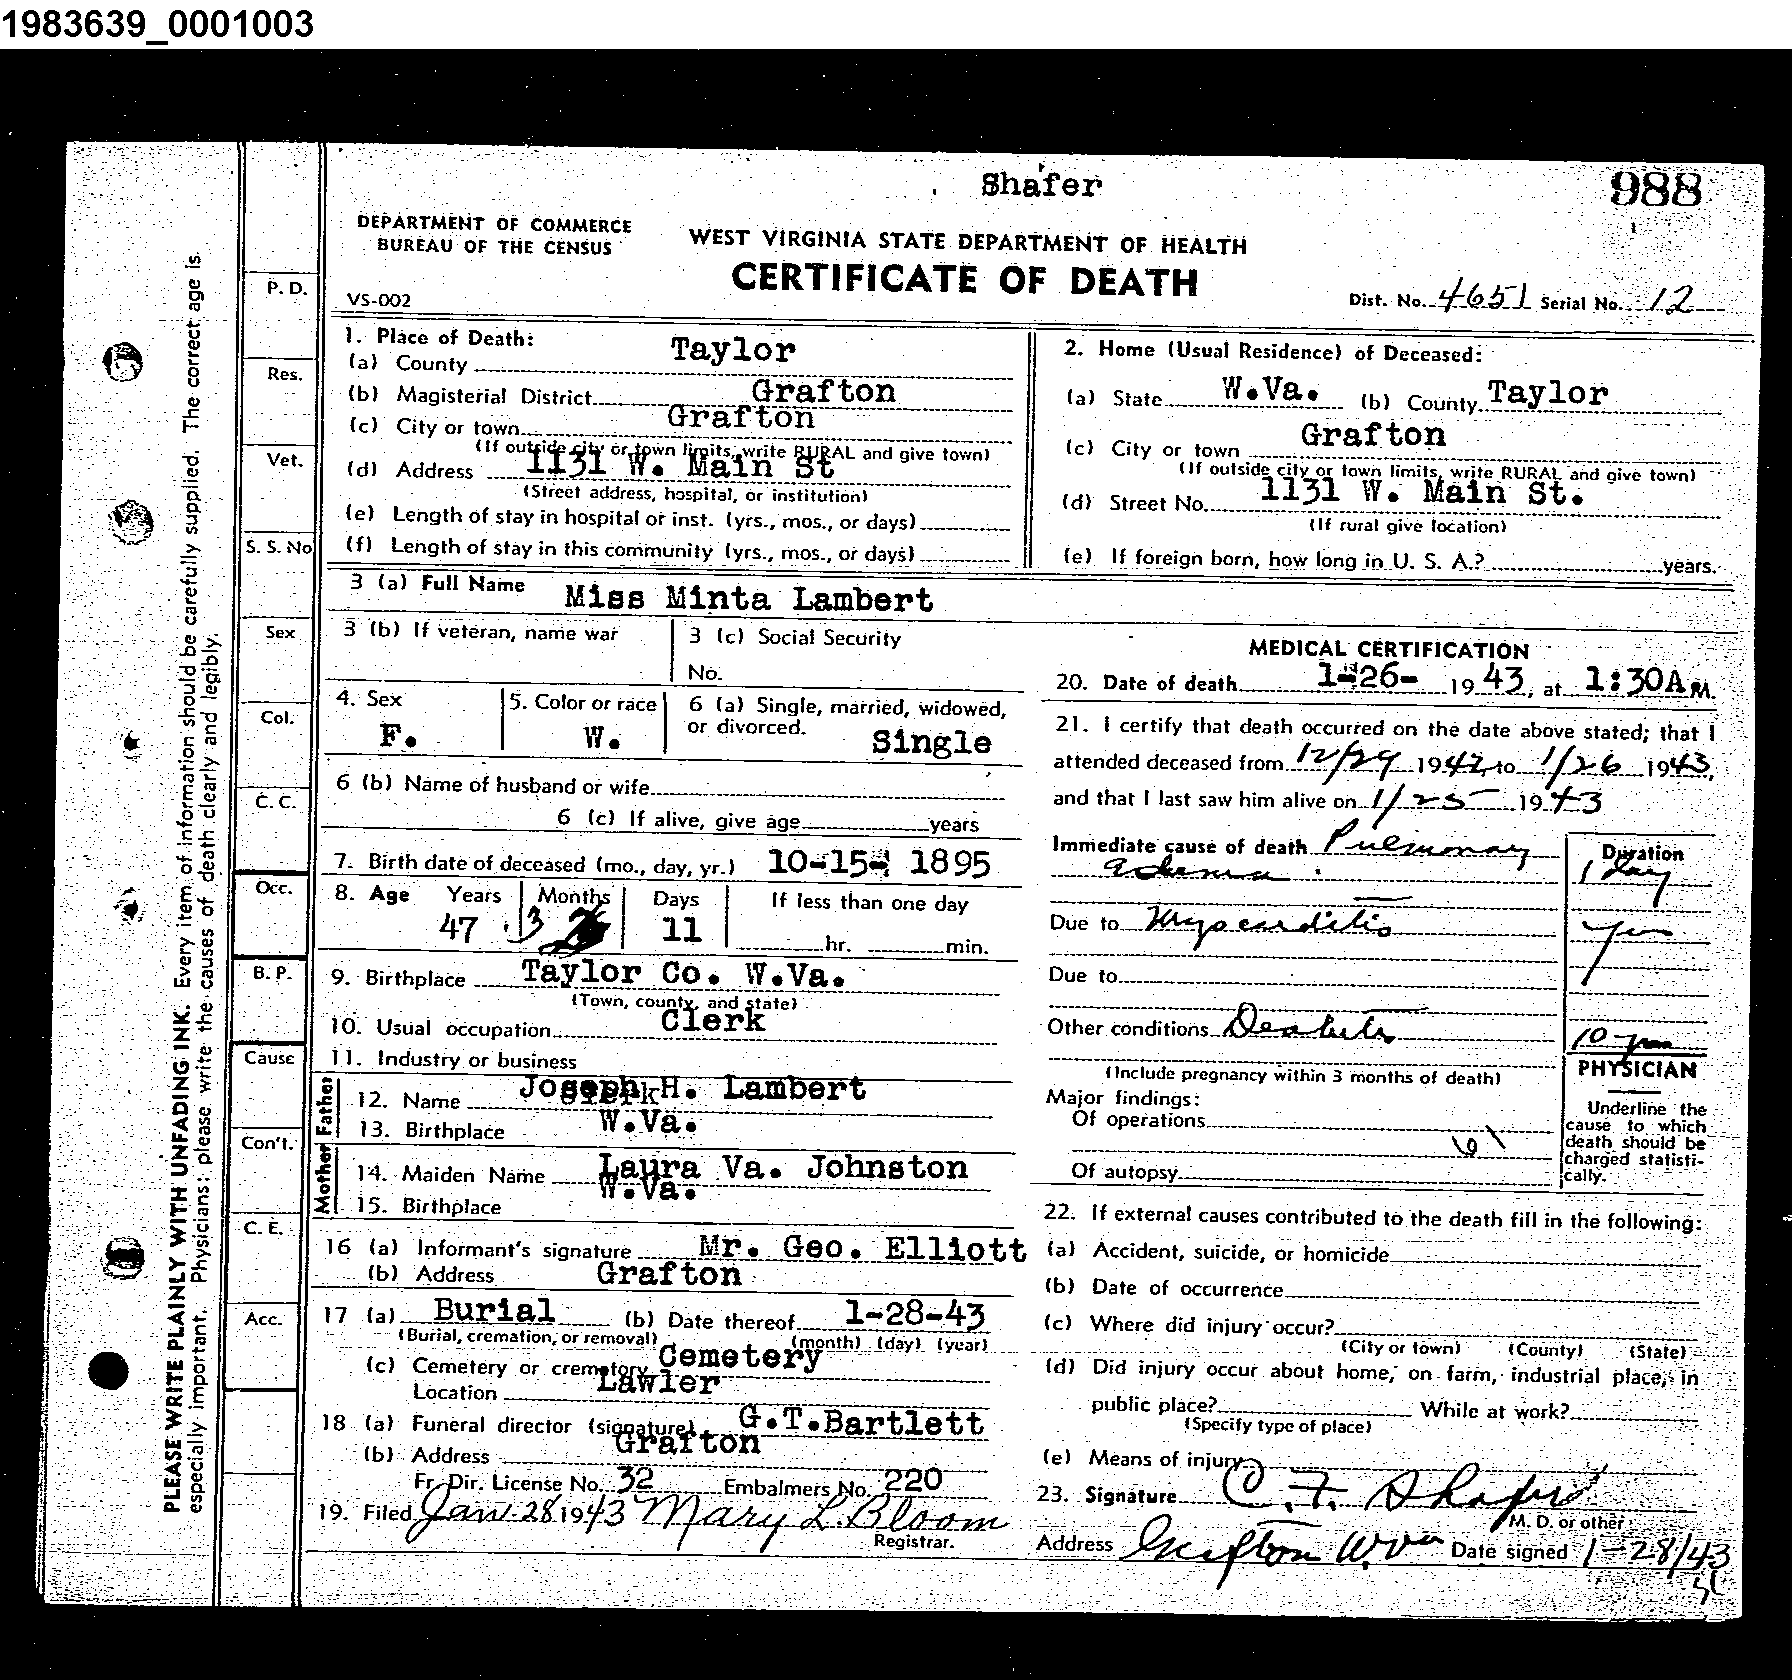 1983639_0001003
Shafer
988
DEPARTMENT OF COMMERCE
BUREAU OF THE CENSUS
WEST VIRGINIA STATE DEPARTMENT OF HEALTH
CERTIFICATE OF DEATH
VS-002
Dist. No. 4651 Serial No. 12
1. Place of Death:
(a) County Taylor
(b) Magisterial District Grafton
(c) City or town Grafton
(If outside city or town limits, write RURAL and give town)
(d) Address 1131 W. Main St
(Street address, hospital, or institution)
(e) Length of stay in hospital or inst. (yrs., mos., or days)
(f) Length of stay in this community (yrs., mos., or days)
2. Home (Usual Residence) of Deceased:
(a) State W.Va. (b) County Taylor
(c) City or town Grafton
(If outside city or town limits, write RURAL and give town)
(d) Street No. 1131 W. Main St.
(If rural give location)
(e) If foreign born, how long in U. S. A.? years.
3 (a) Full Name Miss Minta Lambert
3 (b) If veteran, name war
3 (c) Social Security
No.
4. Sex
F.
5. Color or race
W.
6 (a) Single, married, widowed,
or divorced. Single
6 (b) Name of husband or wife
6 (c) If alive, give age years
7. Birth date of deceased (mo., day, yr.) 10-15- 1895
8. Age Years Months Days If less than one day
47 3 11 hr. min.
9. Birthplace Taylor Co. W.Va.
(Town, county, and state)
10. Usual occupation Clerk
11. Industry or business
Father
12. Name Joseph H. Lambert
13. Birthplace W.Va.
Mother
14. Maiden Name Laura Va. Johnston
15. Birthplace W.Va.
16 (a) Informant's signature Mr. Geo. Elliott
(b) Address Grafton
17 (a) Burial (b) Date thereof 1-28-43
(Burial, cremation, or removal) (month) (day) (year)
(c) Cemetery or crematory Cemetery
Location Lawler
18 (a) Funeral director (signature) G.T.Bartlett
(b) Address Grafton
Fr. Dir. License No. 32 Embalmers No. 220
19. Filed Jan. 28 1943 Mary L. Bloom
Registrar.
MEDICAL CERTIFICATION
20. Date of death 1-26- 1943, at 1:30A M.
21. I certify that death occurred on the date above stated; that I
attended deceased from 12/29 1942, to 1/26 1943,
and that I last saw him alive on 1/25 1943
Immediate cause of death Pulmonary
edema
Duration
1 day
Due to Myocarditis yrs
Due to
Other conditions Deabetes 10 yrs
(Include pregnancy within 3 months of death)
Major findings:
Of operations
61
Of autopsy
PHYSICIAN
Underline the
cause to which
death should be
charged statisti-
cally.
22. If external causes contributed to the death fill in the following:
(a) Accident, suicide, or homicide
(b) Date of occurrence
(c) Where did injury occur?
(City or town) (County) (State)
(d) Did injury occur about home, on farm, industrial place, in
public place? While at work?
(Specify type of place)
(e) Means of injury
23. Signature C. F. Shafer
M. D. or other
Address Grafton W.Va Date signed 1-28/43
P. D.
Res.
Vet.
S. S. No
Sex
Col.
C. C.
Occ.
B. P.
Cause
Con't.
C. E.
Acc.
PLEASE WRITE PLAINLY WITH UNFADING INK. Every item of information should be carefully supplied. The correct age is
especially important. Physicians; please write the causes of death clearly and legibly.